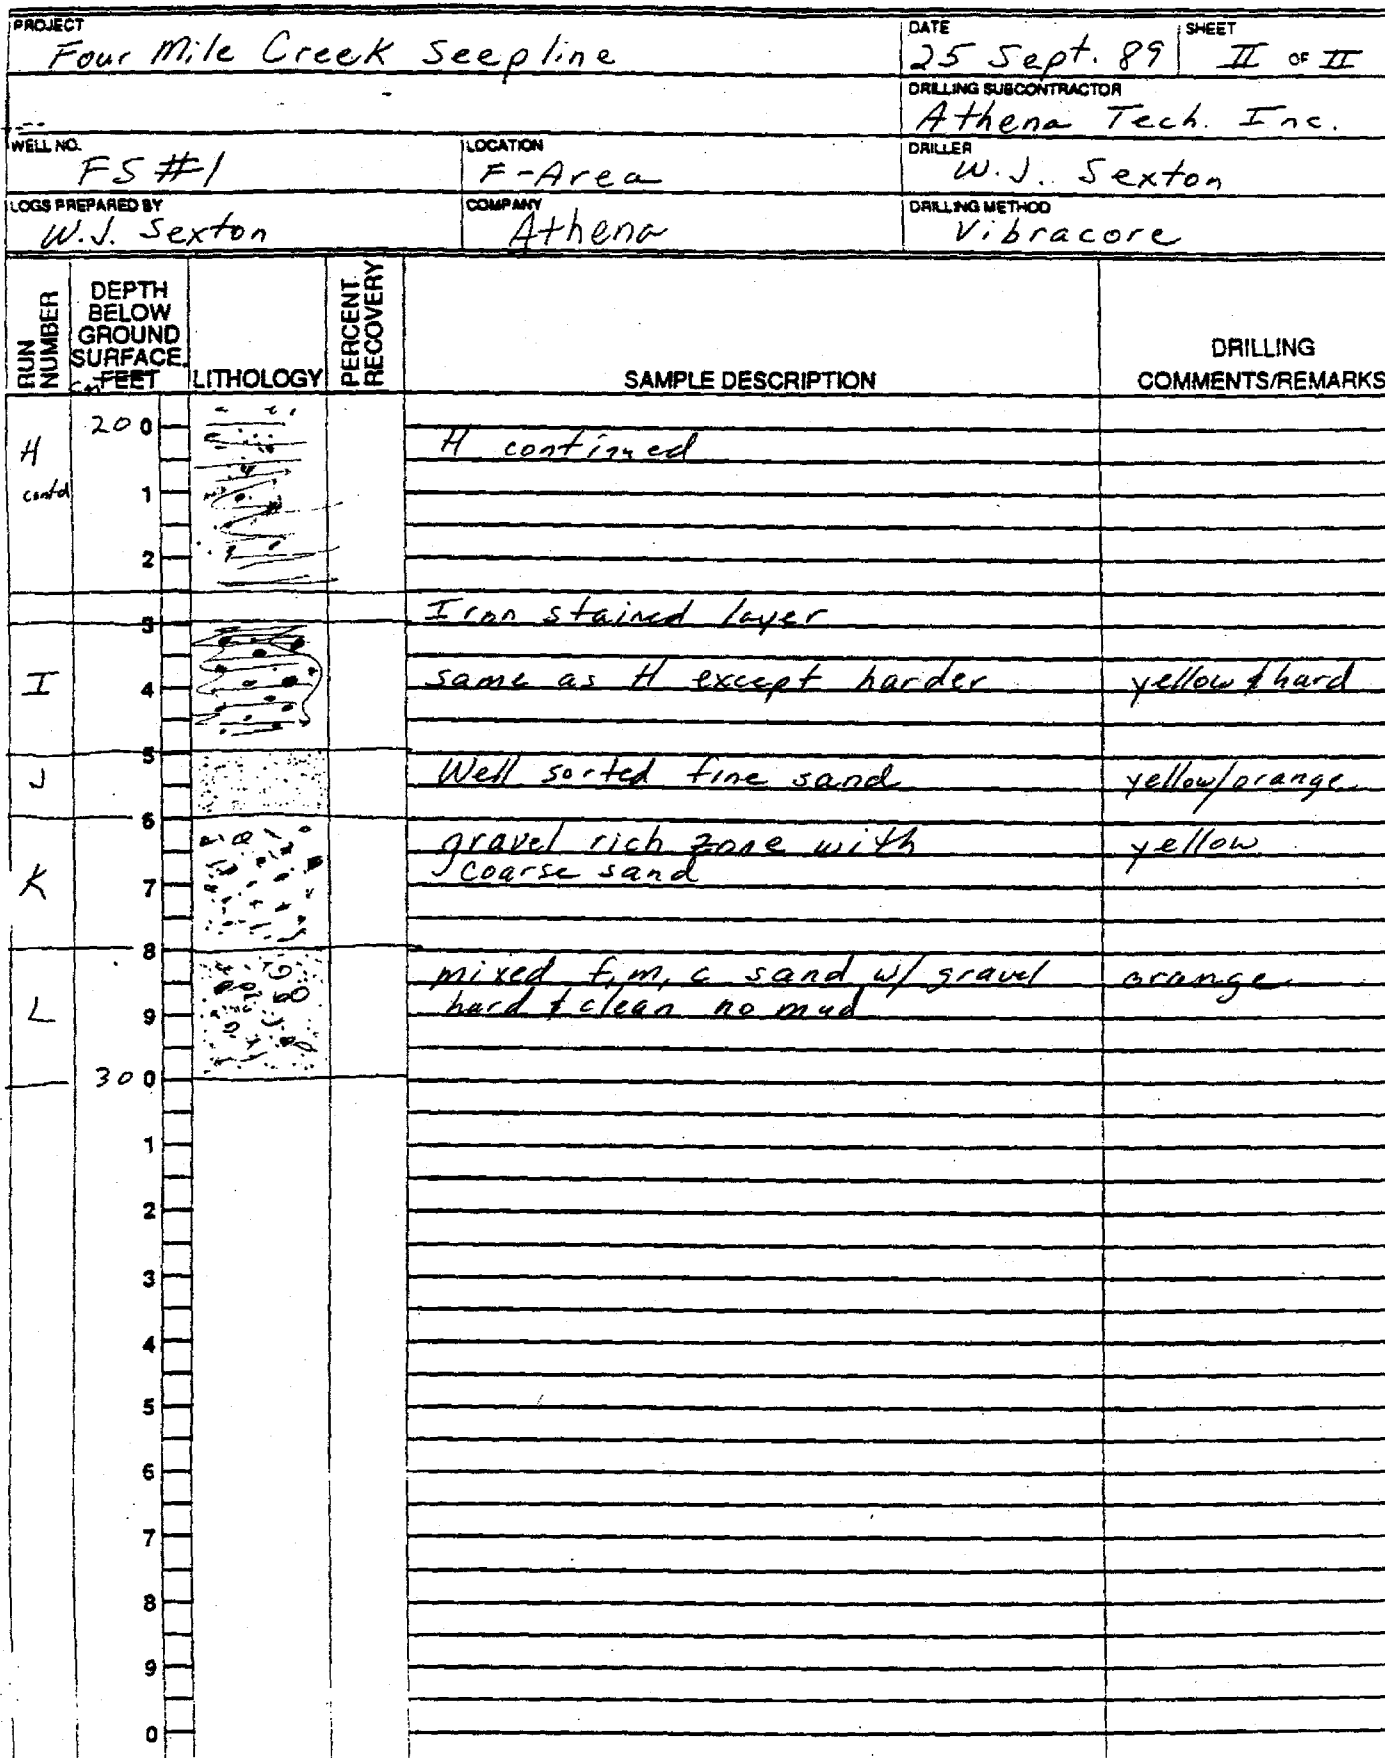 PROJECT
Four Mile Creek Seepline
DATE
25 Sept. 89
SHEET
II OF II
DRILLING SUBCONTRACTOR
Athena Tech. Inc.
WELL NO.
FS #1
LOCATION
F-Area
DRILLER
W.J. Sexton
LOGS PREPARED BY
W.J. Sexton
COMPANY
Athena
DRILLING METHOD
Vibracore
RUN NUMBER
DEPTH
BELOW
GROUND
SURFACE.
cm FEET
LITHOLOGY
PERCENT RECOVERY
SAMPLE DESCRIPTION
DRILLING
COMMENTS/REMARKS
H
contd
20 0
H continued
1
2
3
Iron stained layer
I
4
same as H except harder
yellow & hard
5
J
Well sorted fine sand
yellow/orange
6
gravel rich zone with
yellow
coarse sand
K
7
8
mixed f, m, c sand w/ gravel
orange
hard & clean no mud
L
9
30 0
1
2
3
4
5
6
7
8
9
0